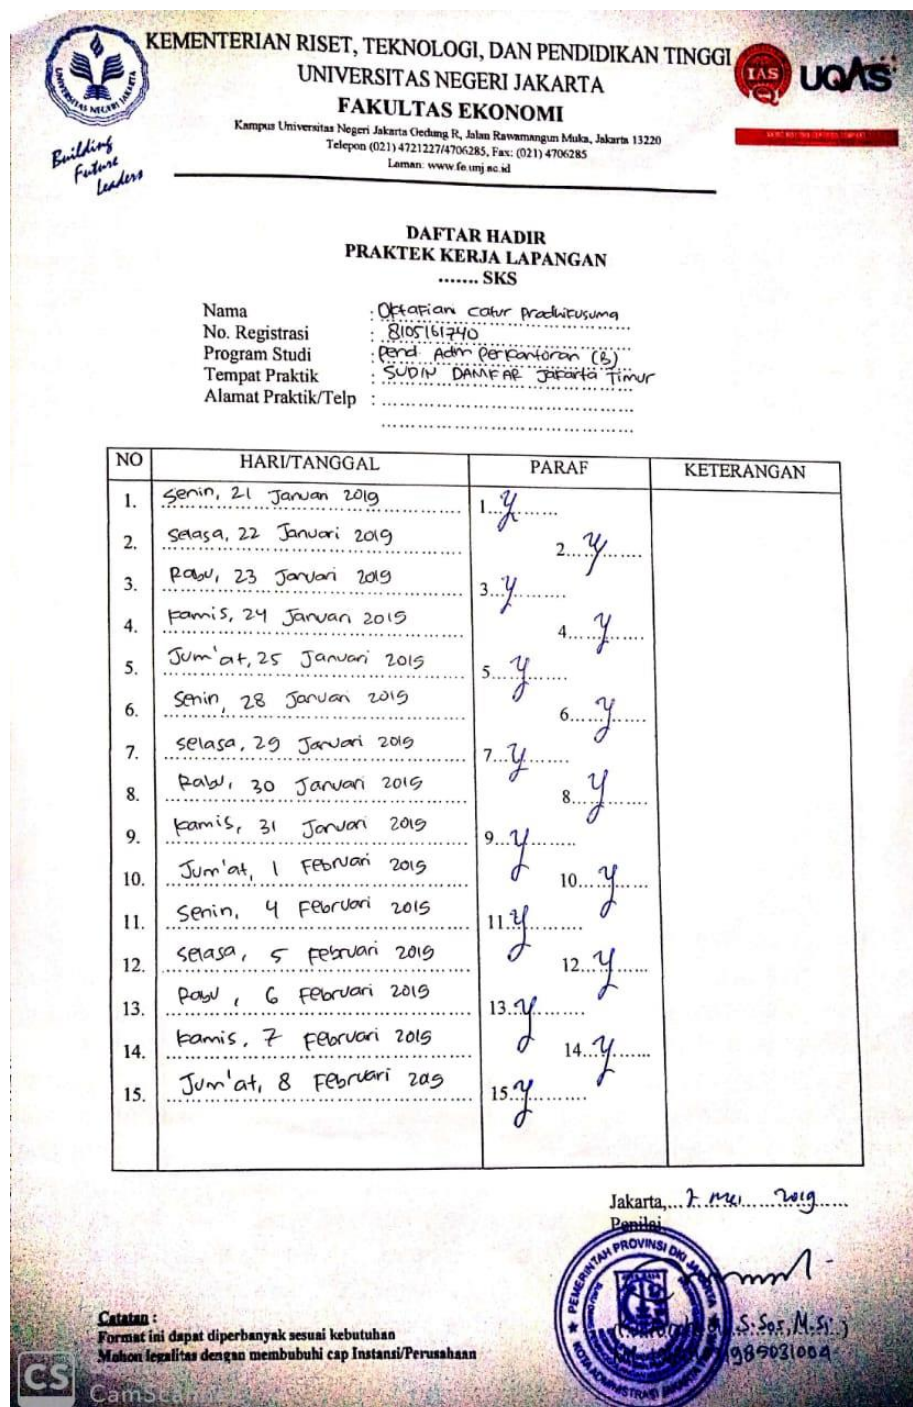 KEMENTERIAN RISET, TEKNOLOGI, DAN PENDIDIKAN TINGGI
UNIVERSITAS NEGERI JAKARTA
FAKULTAS EKONOMI
Kampus Universitas Negeri Jakarta Gedung R, Jalan Rawamangun Muka, Jakarta 13220
Telepon (021) 4721227/4706285, Fax: (021) 4706285
Laman: www.fe.unj.ac.id
UNIVERSITAS NEGERI JAKARTA
Building
Future
Leaders
IAS
UQAS
DAFTAR HADIR
PRAKTEK KERJA LAPANGAN
....... SKS
Nama : Oktafian Catur Pradhikusuma
No. Registrasi : 8105161740
Program Studi : Pend. Adm Perkantoran (B)
Tempat Praktik : SUDIN DAMKAR Jakarta Timur
Alamat Praktik/Telp : ........................................
NO HARI/TANGGAL PARAF KETERANGAN
1. Senin, 21 Januari 2019 1.
2. Selasa, 22 Januari 2019 2.
3. Rabu, 23 Januari 2019 3.
4. Kamis, 24 Januari 2019 4.
5. Jum'at, 25 Januari 2019 5.
6. Senin, 28 Januari 2019 6.
7. Selasa, 29 Januari 2019 7.
8. Rabu, 30 Januari 2019 8.
9. Kamis, 31 Januari 2019 9.
10. Jum'at, 1 Februari 2019 10.
11. Senin, 4 Februari 2019 11.
12. Selasa, 5 Februari 2019 12.
13. Rabu, 6 Februari 2019 13.
14. Kamis, 7 Februari 2019 14.
15. Jum'at, 8 Februari 2019 15.
Jakarta, 7 Mei 2019
Penilai
PEMERINTAH PROVINSI DKI JAKARTA
KOTA ADMINISTRASI
S.Sos, M.Si )
Catatan :
Format ini dapat diperbanyak sesuai kebutuhan
Mohon legalitas dengan membubuhi cap Instansi/Perusahaan
CS